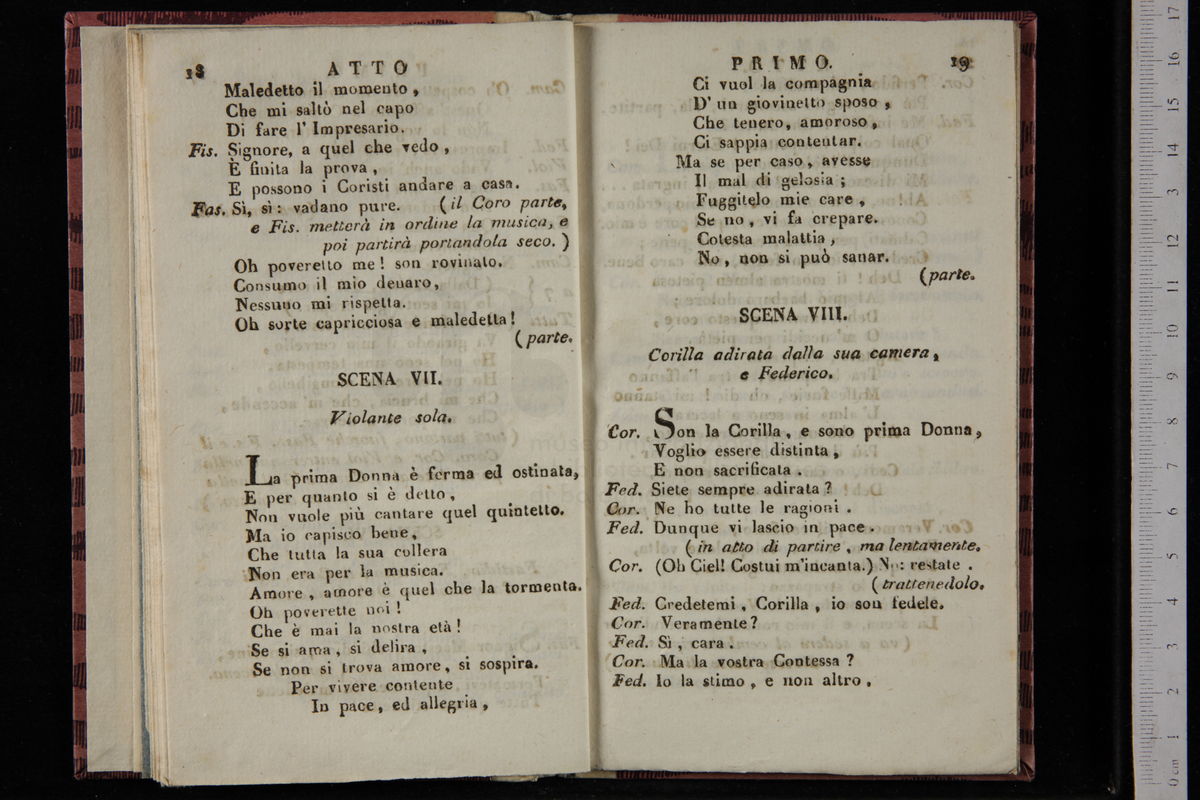 18 ATTO
Maledetto il momento,
Che mi saltò nel capo
Di fare l' Impresario.
Fis. Signore, a quel che vedo,
È finita la prova,
E possono i Coristi andare a casa.
Fas. Sì, sì: vadano pure. (il Coro parte,
e Fis. metterà in ordine la musica, e
poi partirà portandola seco.)
Oh poveretto me! son rovinato.
Consumo il mio denaro,
Nessuno mi rispetta.
Oh sorte capricciosa e maledetta!
(parte.
SCENA VII.
Violante sola.
La prima Donna è ferma ed ostinata,
E per quanto si è detto,
Non vuole più cantare quel quintetto.
Ma io capisco bene,
Che tutta la sua collera
Non era per la musica.
Amore, amore è quel che la tormenta.
Oh poverette noi!
Che è mai la nostra età!
Se si ama, si delira,
Se non si trova amore, si sospira.
Per vivere contente
In pace, ed allegria,
PRIMO. 19
Ci vuol la compagnia
D' un giovinetto sposo,
Che tenero, amoroso,
Ci sappia contentar.
Ma se per caso, avesse
Il mal di gelosia;
Fuggitelo mie care,
Se no, vi fa crepare.
Cotesta malattia,
No, non si può sanar.
(parte.
SCENA VIII.
Corilla adirata dalla sua camera,
e Federico.
Cor. Son la Corilla, e sono prima Donna,
Voglio essere distinta,
E non sacrificata.
Fed. Siete sempre adirata?
Cor. Ne ho tutte le ragioni.
Fed. Dunque vi lascio in pace.
(in atto di partire, ma lentamente.
Cor. (Oh Ciel! Costui m'incanta.) No: restate.
(trattenedolo.
Fed. Credetemi, Corilla, io son fedele.
Cor. Veramente?
Fed. Sì, cara.
Cor. Ma la vostra Contessa?
Fed. Io la stimo, e non altro.
0 cm 1 2 3 4 5 6 7 8 9 10 11 12 13 14 15 16 17